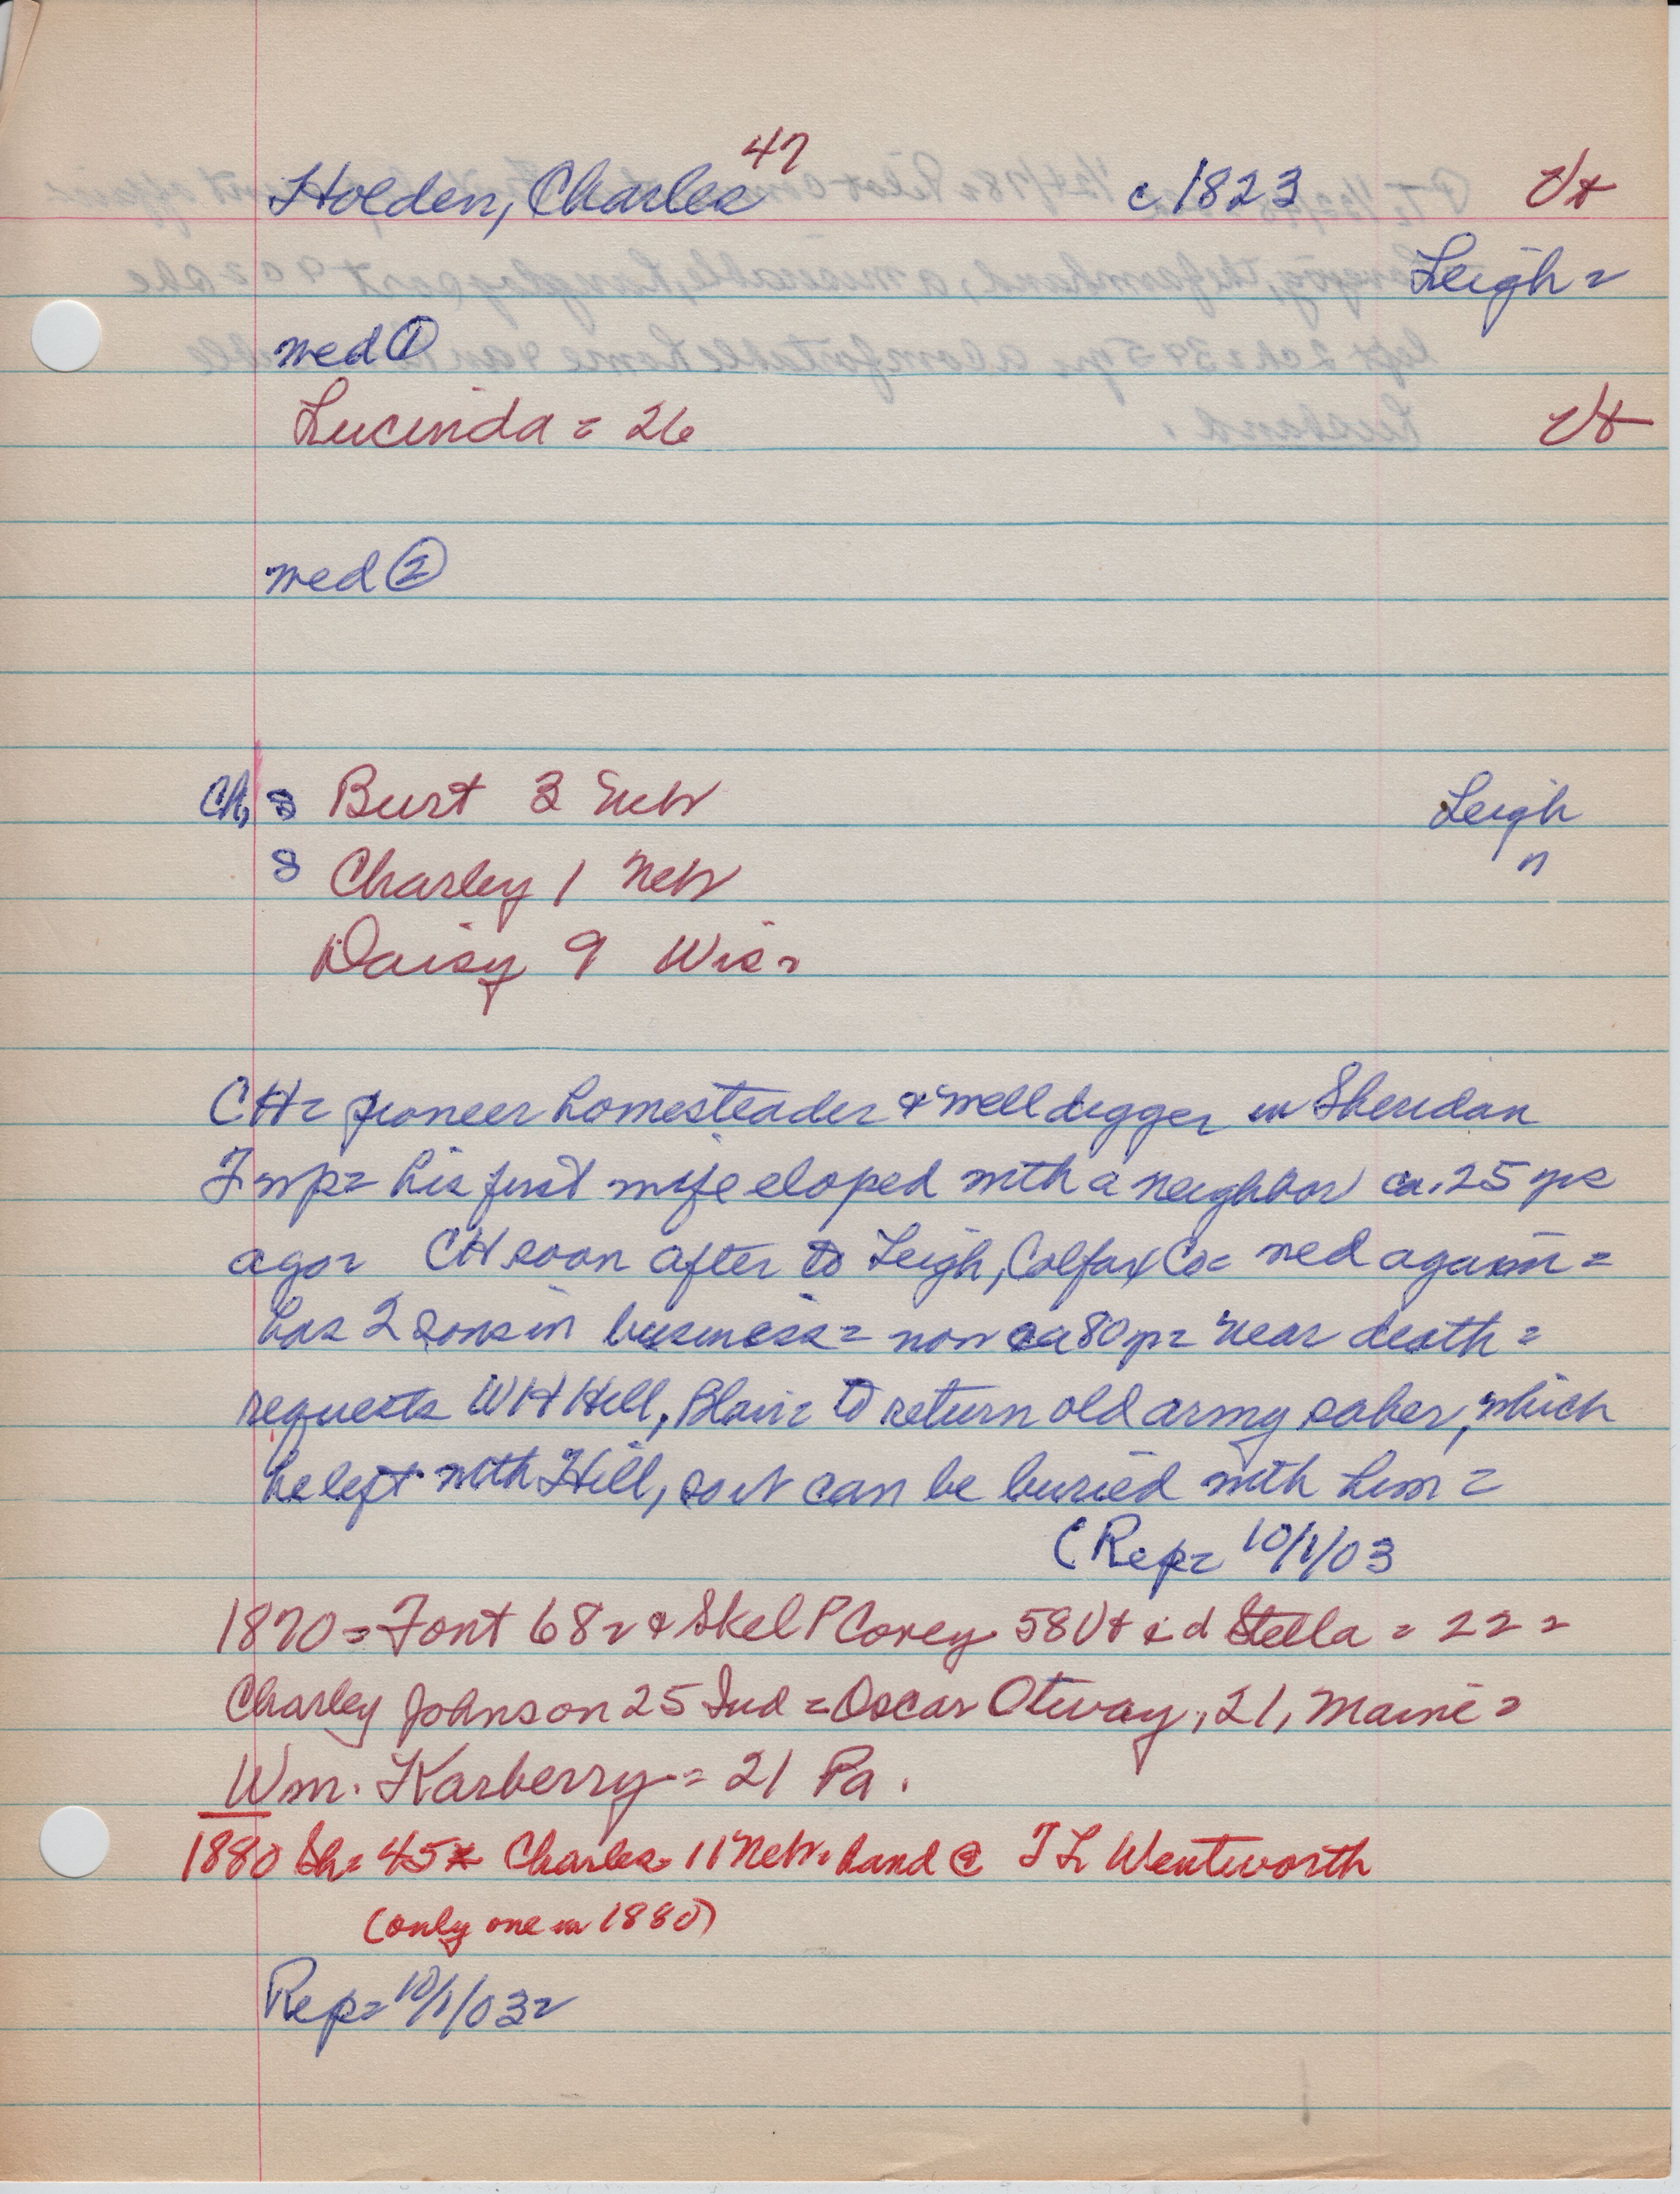 Holden, Charles 47 c 1823 Vt
Leigh =
med ①
Lucinda = 26 Vt
med ②
Ch, s Burt 3 Neb Leigh
s Charley 1 Neb "
Daisy 9 Wis =
CH = pioneer homesteader & well digger in Sheridan
Twp = his first wife eloped with a neighbor ca. 25 yrs
ago = CH soon after to Leigh, Colfax Co = med again =
has 2 sons in business = now ca 80 yr = near death =
requests WH Hill, Blair = to return old army saber, which
he left with Hill, so it can be buried with him =
(Rep = 10/1/03
1870 = Font 68 = & Skel P Corey 58 Vt & d Stella = 22 =
Charley Johnson 25 Ind = Oscar Otway, 21, Maine =
Wm. Karberry = 21 Pa.
1880 Sh = 45 * Charles = 11 Neb = hand @ T L Wentworth
(only one in 1880)
Rep = 10/1/03 =